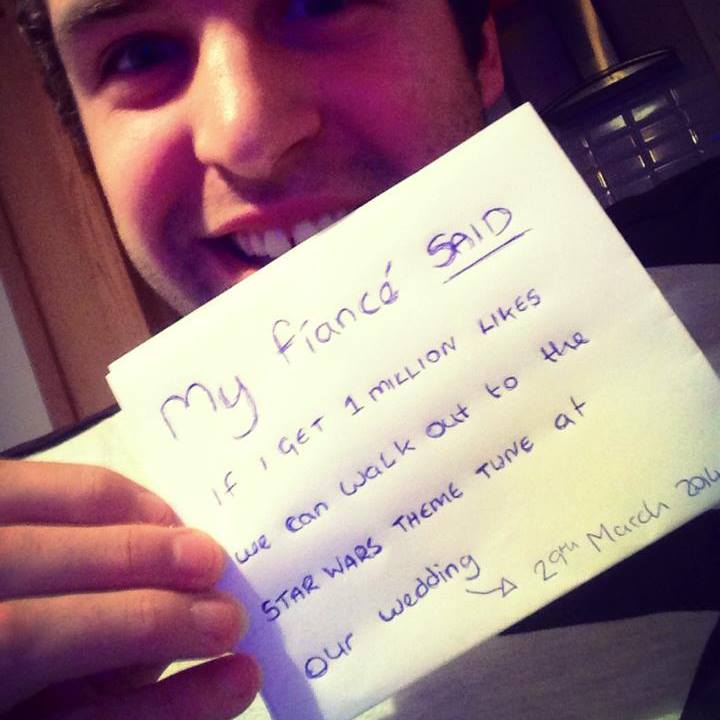 My fiancé SAID
IF I GET 1 MILLION LIKES
we can walk out to the
STAR WARS THEME TUNE at
our wedding → 29th March 2014